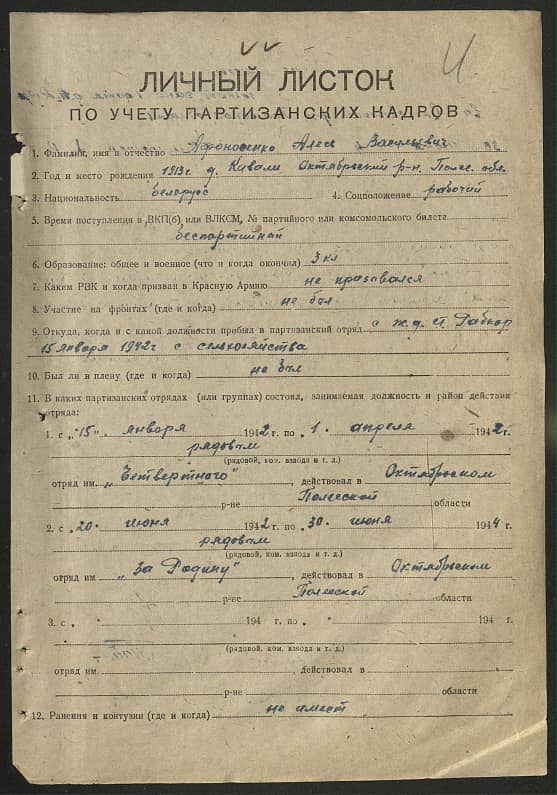 ЛИЧНЫЙ ЛИСТОК
ПО УЧЕТУ ПАРТИЗАНСКИХ КАДРОВ
1. Фамилия, имя и отчество Афоносенко Алесь Васильевич
2. Год и место рождения 1913 г д. Ковали Октябрьский р-н. Полес. обл.
3. Национальность белорус 4. Соцположение рабочий
5. Время поступления в ВКП(б) или ВЛКСМ, № партийного или комсомольского билета
беспартийный
6. Образование: общее и военное (что и когда окончил) 3 кл
7. Каким РВК и когда призван в Красную Армию не призывался
8. Участие на фронтах (где и когда) не был
9. Откуда, когда и с какой должности прибыл в партизанский отряд с ж.д. ст. Рабкор
15 января 1942 г с сельхозяйства
10. Был ли в плену (где и когда) не был
11. В каких партизанских отрядах (или группах) состоял, занимаемая должность и район действия
отряда:
1. с „15" января 1942 г. по „1. апреля 1942 г.
рядовым
(рядовой, ком. взвода и т. д.)
отряд им. „Четвертного", действовал в Октябрьском
р-не Полесской области
2. с „20. июня 1942 г. по „30. июня 1944 г.
рядовым
(рядовой, ком. взвода и т. д.)
отряд им „За Родину", действовал в Октябрьском
р-не Полесской области
3. с „ " 194 г. по „ " 194 г.
(рядовой, ком. взвода и т. д.)
отряд им. действовал в
р-не области
12. Ранения и контузии (где и когда) не имеет